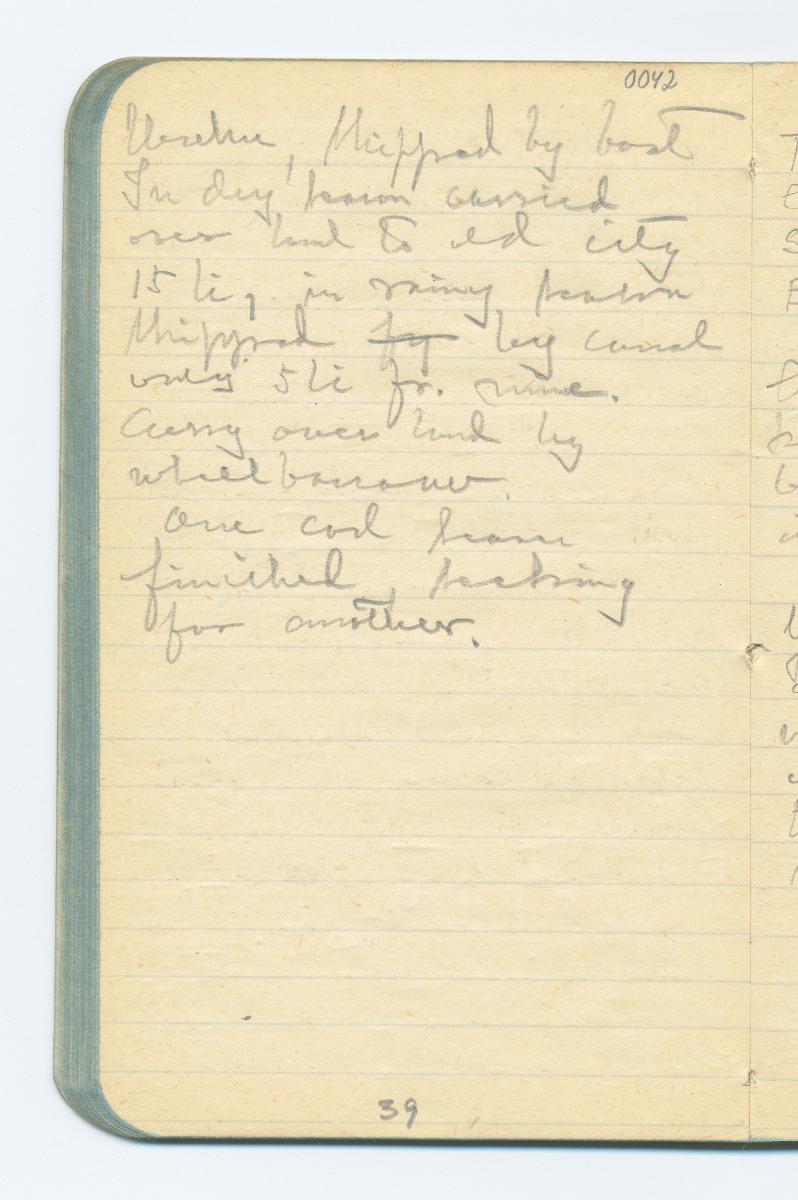 0042
, shipped by boat
In dry season carried
over land to old city
15 li, in rainy season
shipped by by canal
only 5 li fr. mine.
Carry over land by
wheelbarrow.
One coal seam
finished, seeking
for another.
39